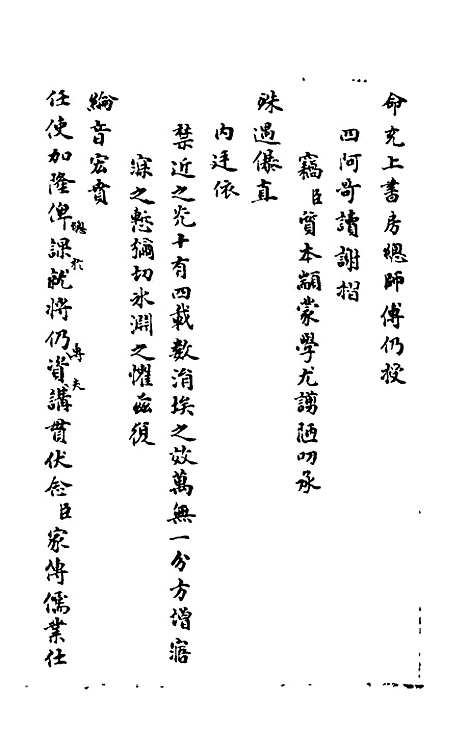 命充上書房總師傅仍授
四阿哥讀謝摺
竊臣質本顓蒙學尤譾陋叨承
殊遇儤直
內廷依
禁近之光十有四載數涓埃之效萬無一分方增寤
寐之慙彌切氷淵之懼茲復
綸音宏賁
任使加隆俾總於課就將仍專夫資講貫伏念臣家傳儒業仕